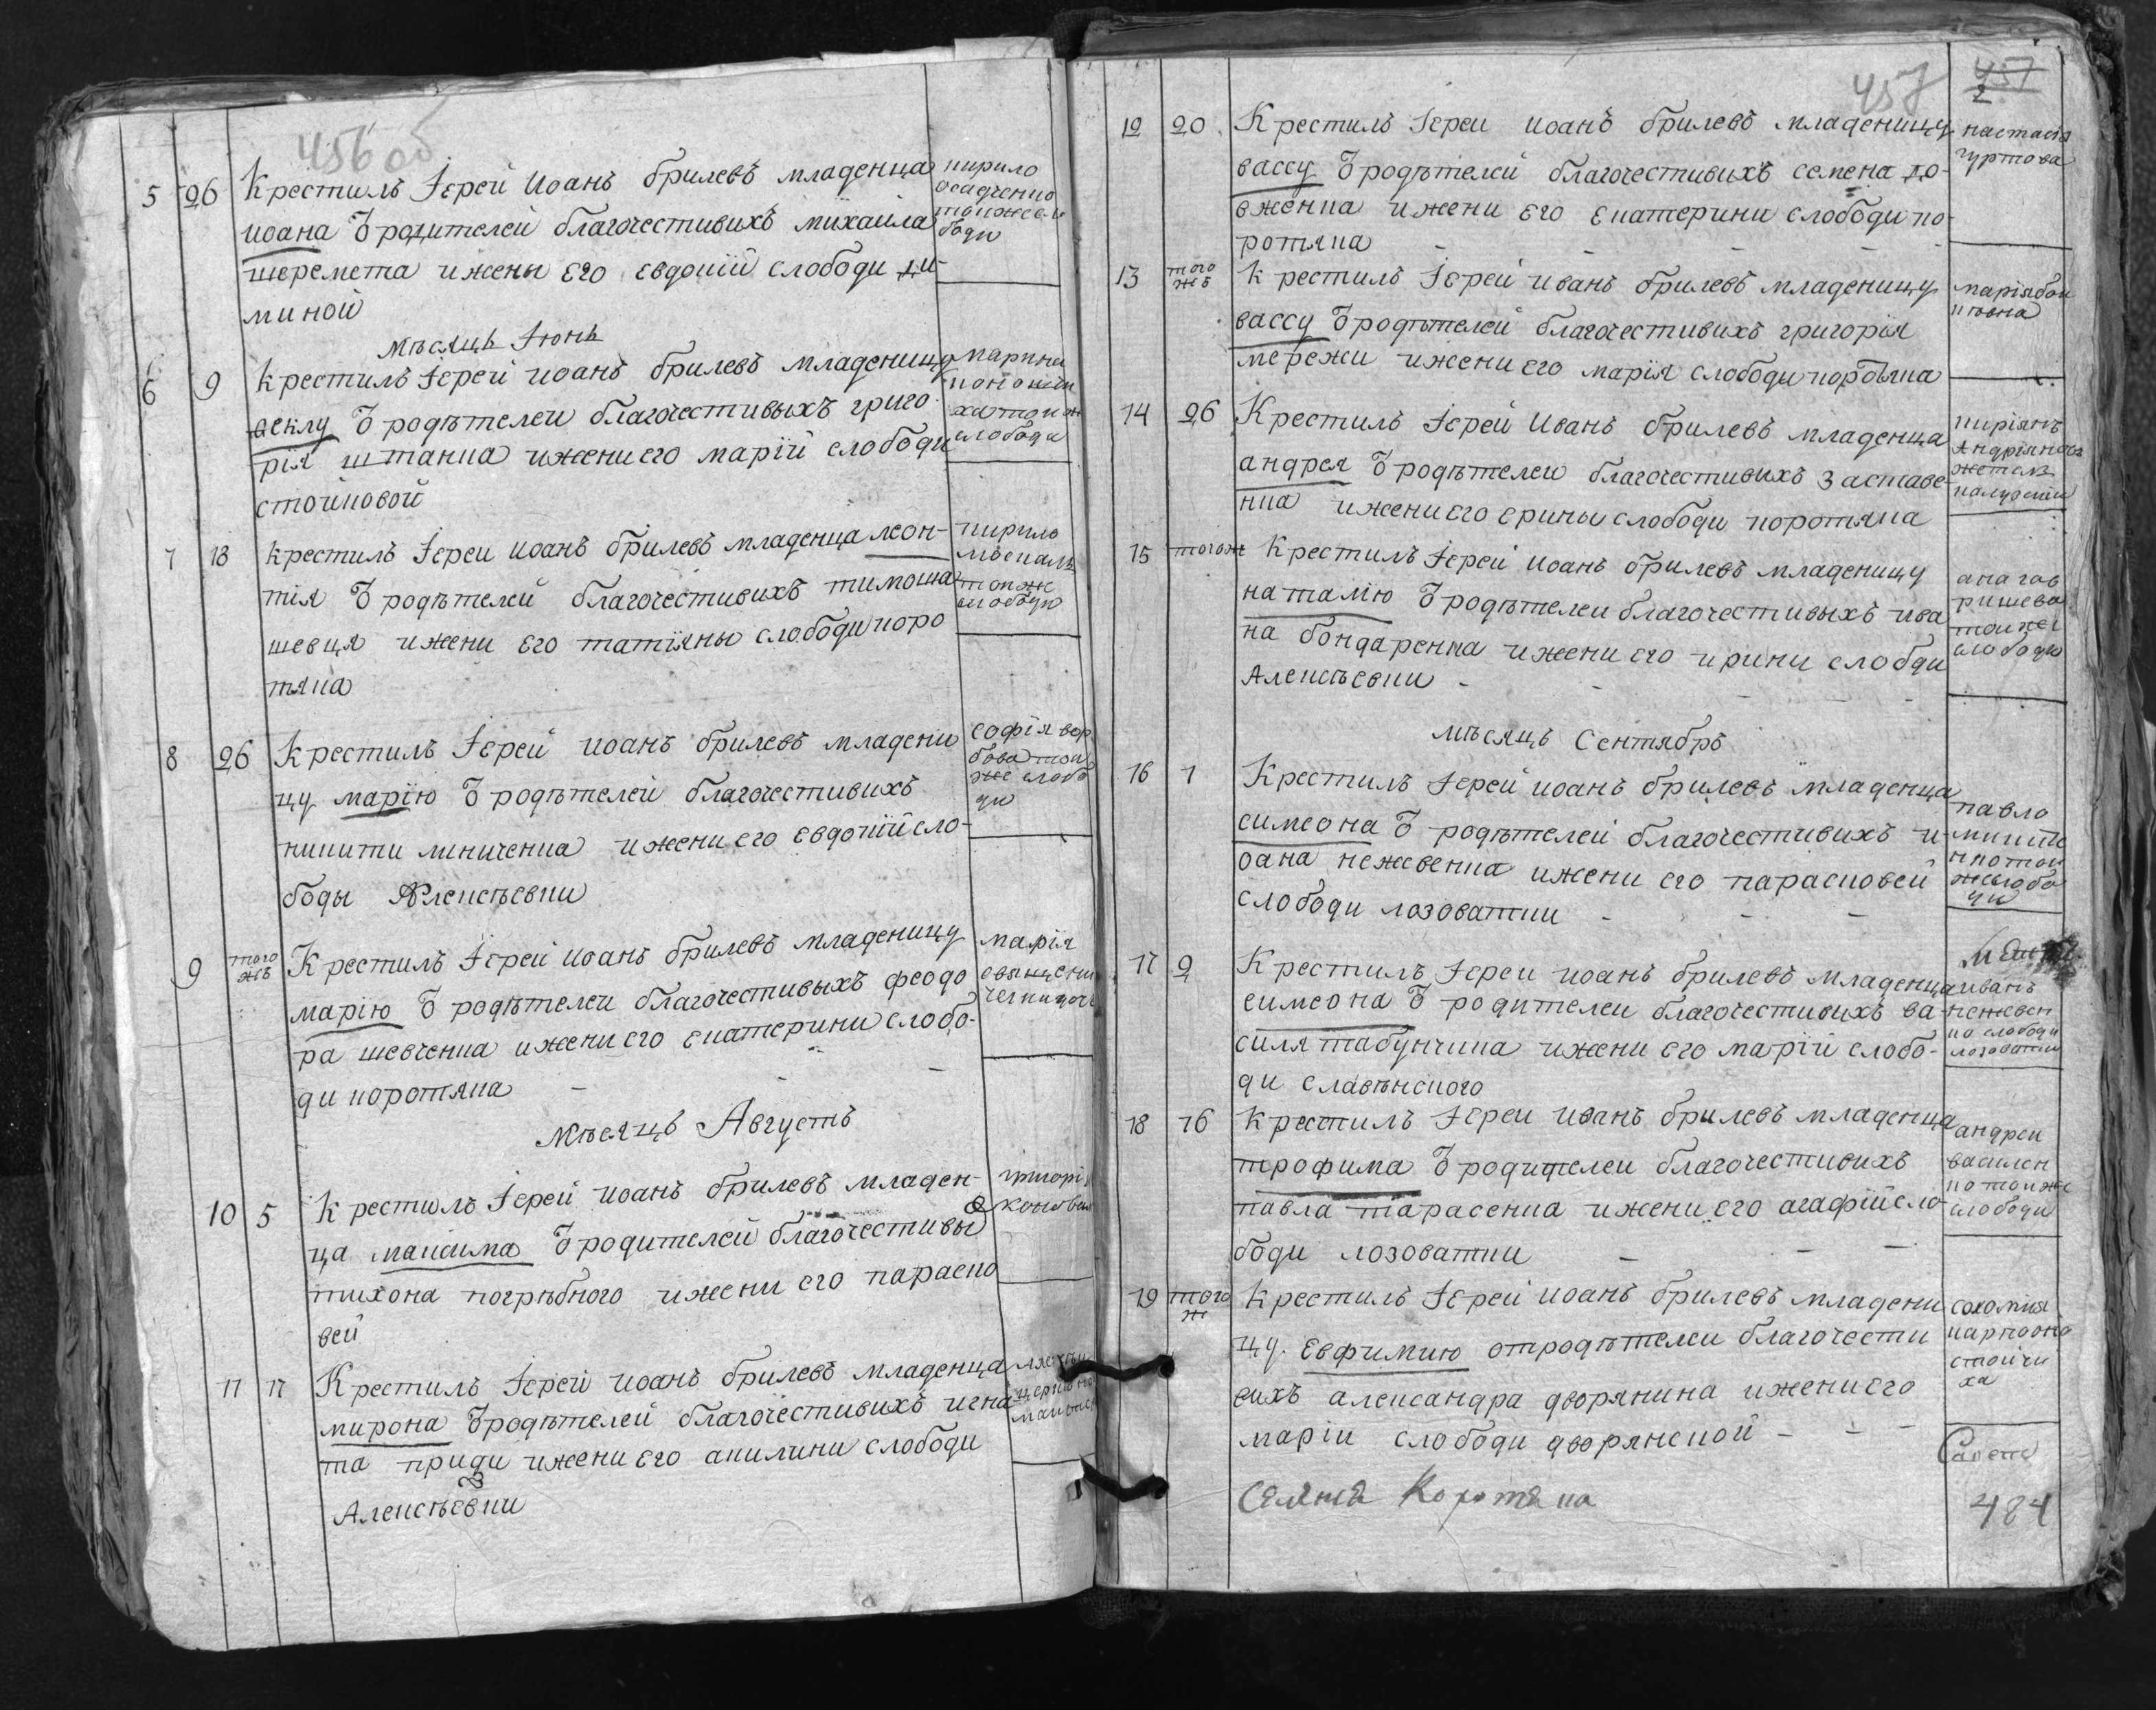 456 об
5 26 Крестилъ Іерей Иоанъ брилевъ младенца
иоана ѿ родителей благочестивихъ михаила
шеремета и жены его евдокій слободи ди-
миной
кирило
осадченко
тоижесло
боди
Мѣсяцъ Іюнь
6 9 Крестилъ Іерей иоанъ брилевъ младеницу
феклу ѿ родѣтелеи благочестивыхъ григо
рія штанка и жени его марій слободи
стойковой
марина
кононени
ха тоиж
слободи
7 18 Крестилъ Іереи иоанъ брилевъ младенца леон-
тія ѿ родѣтелей благочестивихъ тимоша
шевця и жени его татіяны слободи коро
тяка
кирило
тоиже
слободи
8 26 Крестилъ Іерей иоанъ брилевъ младени
цу марїю ѿ родѣтелей благочестивихъ
никити линиченка и жени его евдокій сло-
боды Алексѣевки
софія вер
бова тои
же слобо
ди
9 того жъ Крестилъ Іереи иоанъ брилевъ младеницу
марію ѿ родѣтелеи благочестивыхъ феодо
ра шевченка и жени его екатерини слобо-
ди коротяка
марія
Мѣсяцъ Августъ
10 5 Крестилъ Іерей иоанъ брилевъ младен-
ца максима ѿ родителей благочестивых
тихона погрѣбного и жени его параско
вей
григорі
коновал
11 17 Крестилъ Іерей иоанъ брилевъ младенца
мирона ѿ родѣтелей благочестивихъ игна
та приди и жени его акилини слободи
Алексѣевки
457
457
2
12 20 Крестилъ Іереи иоанъ брилевъ младеницу
вассу ѿ родѣтелей благочестивихъ семена до-
вженка и жени его екатерини слободи ко-
ротяка
настасія
гуртова
13 того жъ Крестилъ Іерей иванъ брилевъ младеницу
вассу ѿ родѣтелей благочестивихъ григорія
мережи и жени его марія слободи коротяка
марія бои
ковна
14 26 Крестилъ Іерей Иванъ брилевъ младенца
андрея ѿ родѣтелеи благочестивихъ заставе-
нка и жени его ерины слободи коротяка
киріянъ
15 тогож Крестилъ Іерей иоанъ брилевъ младеницу
наталїю ѿ родѣтелеи благочестивыхъ ива
на бондаренка и жени его ирини слобди
Алексѣевки
ана гав
ришева
тоиже
слободи
мѣсяцъ Сентябръ
16 1 Крестилъ Іерей иоанъ брилевъ младенца
симеона ѿ родѣтелей благочестивихъ и-
оана нежевенка и жени его парасковеи
слободи лозоватки
павло
миките
нко тои
жеслобо
ди
17 2 Крестилъ Іереи иоанъ брилевъ младенца
симеона ѿ родителеи благочестивихъ ва-
силя табунчика и жени его марій слобо-
ди славѣнского
иванъ
нежевен
ко слободи
лозоватки
18 16 Крестилъ Іереи иванъ брилевъ младенца
трофима ѿ родителеи благочестивихъ
павла тарасенка и жени его агафій сло-
боди лозоватки
андреи
василен
ко тоиже
слободи
19 того ж Крестилъ Іерей иоанъ брилевъ младени
цу евфимию отродѣтелеи благочести
вихъ александра дворянина и жени его
маріи слободи дворянской
соломия
карпова
стойчи
ха
Селенія Коротяка
484